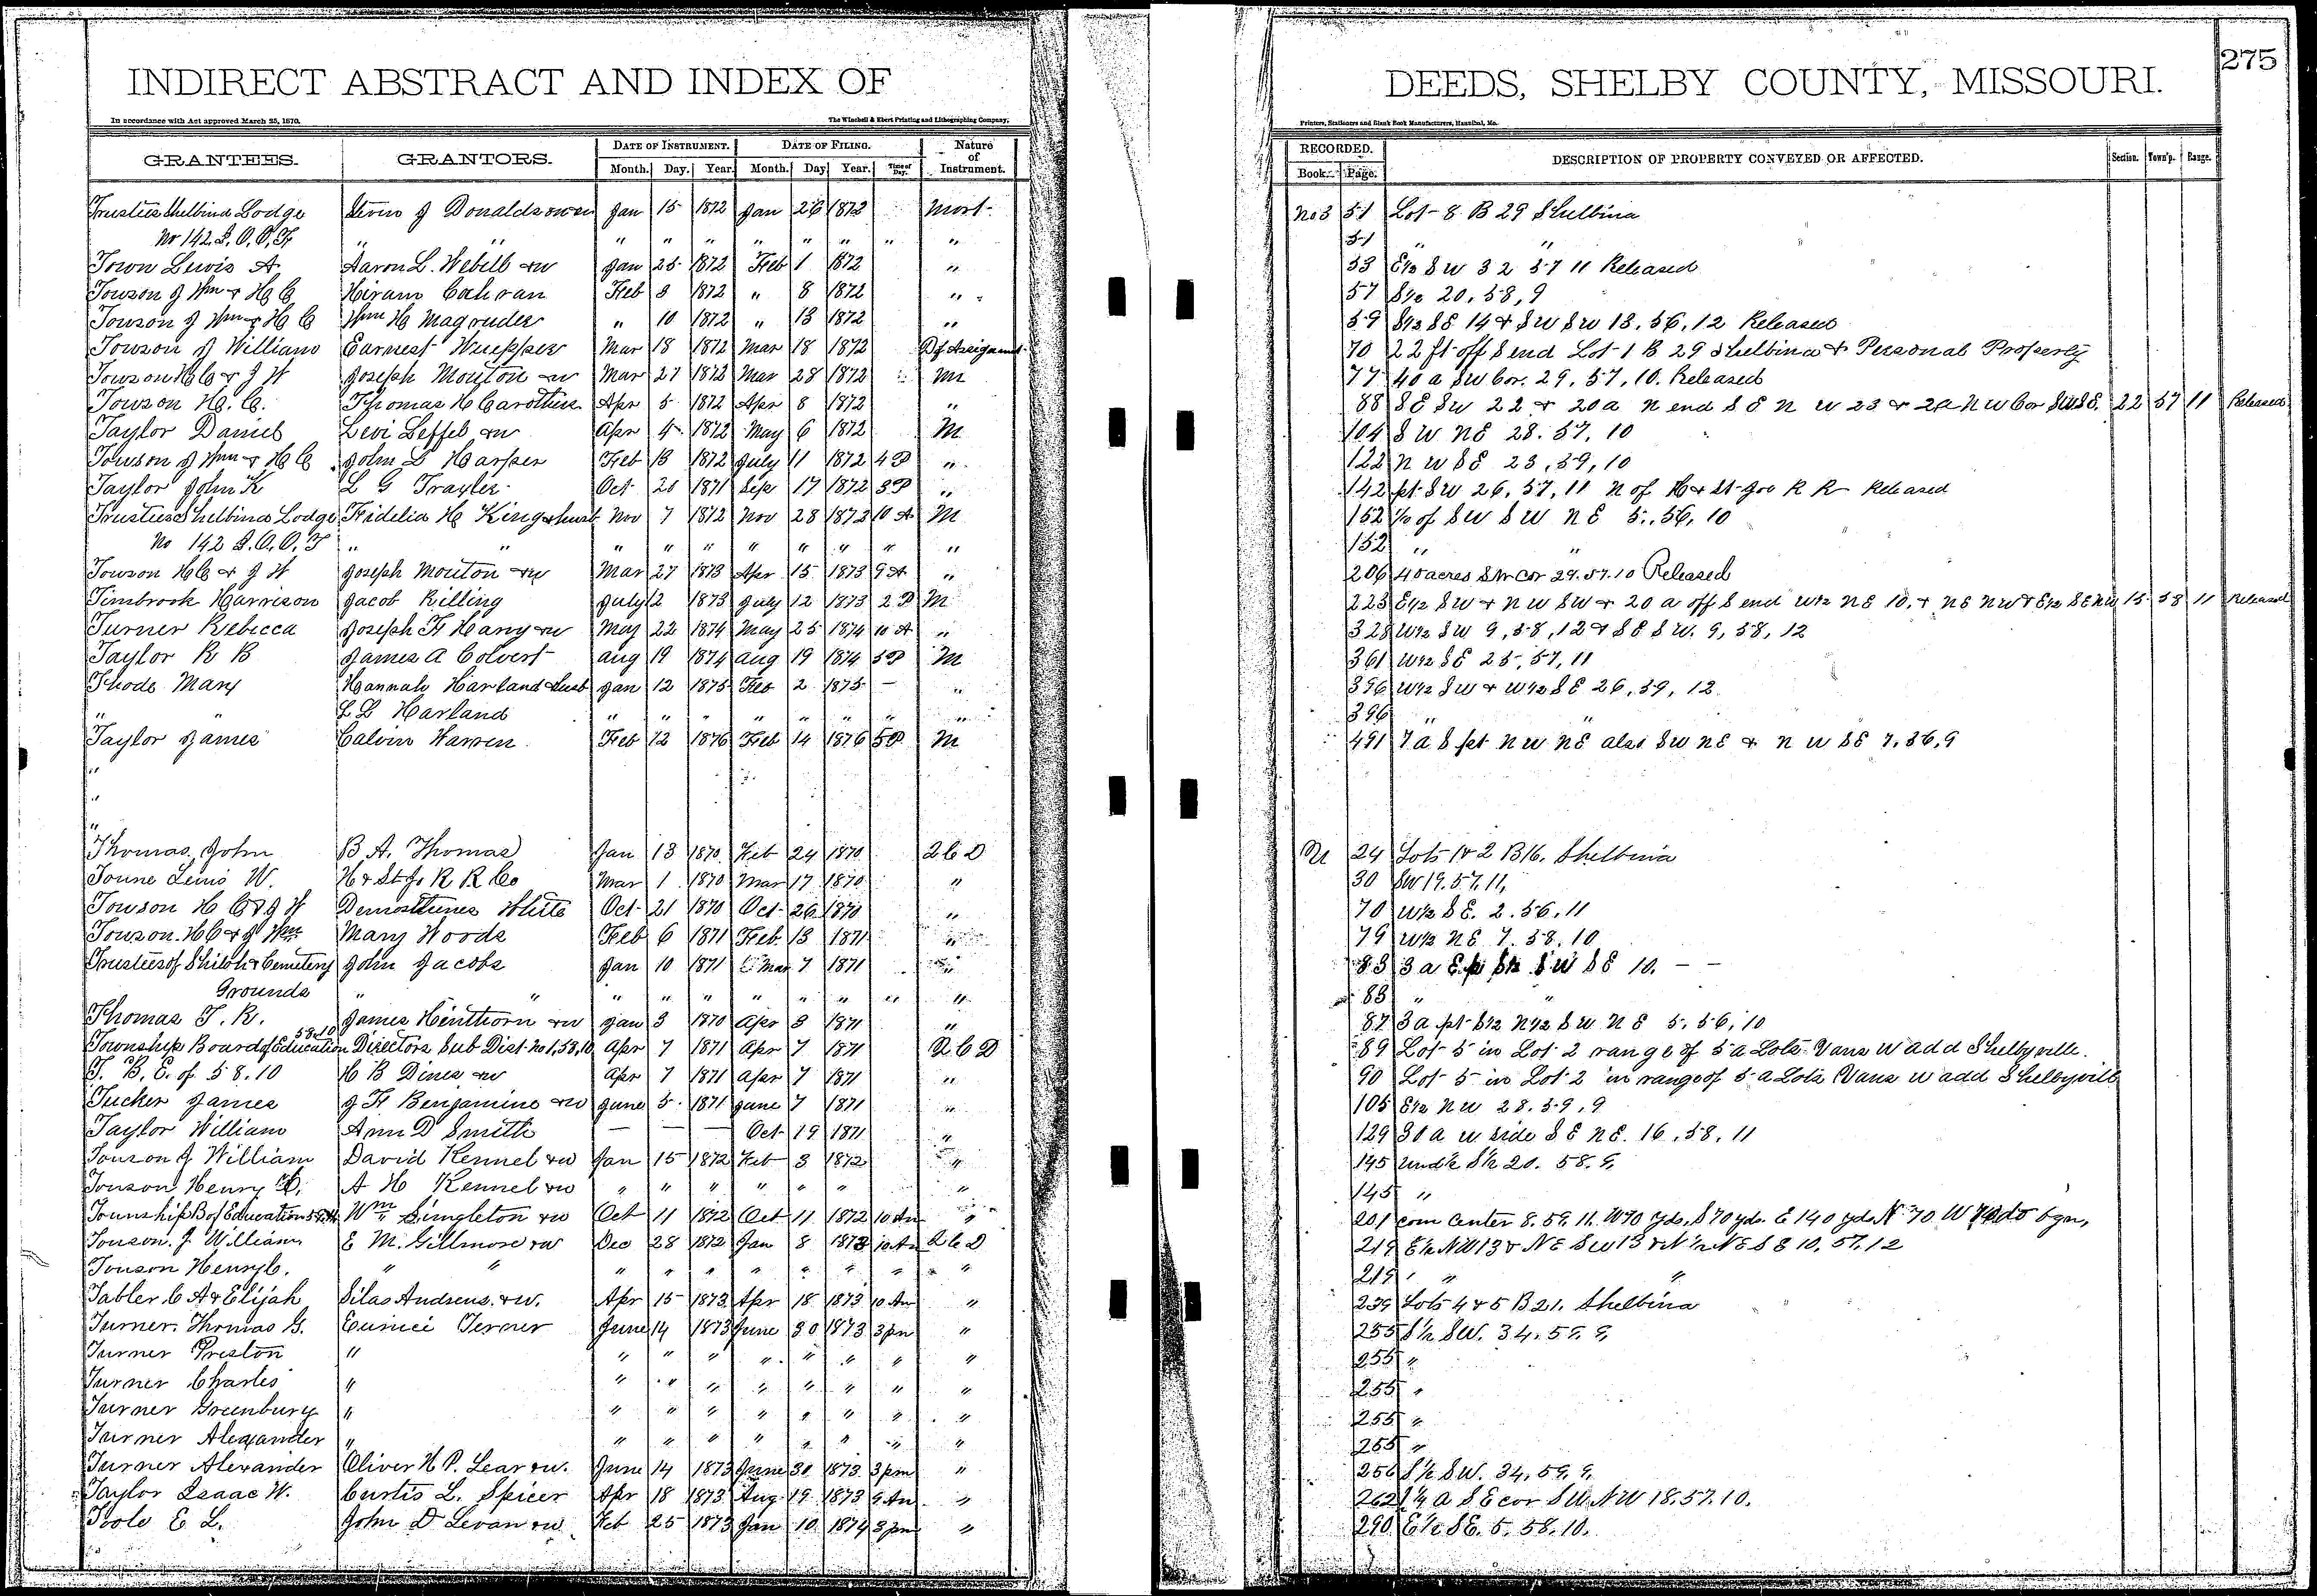 275
INDIRECT ABSTRACT AND INDEX OF DEEDS, SHELBY COUNTY, MISSOURI.
In accordance with Act approved March 25, 1870. The Winchell & Ebert Printing and Lithographing Company, Printers, Stationers and Blank Book Manufacturers, Hannibal, Mo.
GRANTEES. GRANTORS. DATE OF INSTRUMENT. DATE OF FILING. Nature of Instrument. RECORDED. DESCRIPTION OF PROPERTY CONVEYED OR AFFECTED. Section. Town'p. Range.
Month. Day. Year. Month. Day Year. Time of Day. Book. Page.
Trustees Shelbina Lodge J Donaldson Jan 15 1872 Jan 26 1872 Mort No 3 51 Lot 8 B 29 Shelbina
No 142 I.O.O.F. " " " " " " " " " " 51 " "
Town Lewis A. Aaron L. Webell & w Jan 25 1872 Feb 1 1872 " 53 E½ SW 32 57 11 Released
Towson J Wm & H C Hiram Cochran Feb 8 1872 " 8 1872 " 57 S½ 20, 58, 9
Towson J Wm & H C Wm H Magruder " 10 1872 " 13 1872 " 59 S½ SE 14 & SW SW 13, 56, 12 Released
Towson J William Earnest Mar 18 1872 Mar 18 1872 Df Assignmt 70 22 ft off S end Lot 1 B 29 Shelbina & Personal Property
Towson H C & J W Joseph Mouton & w Mar 27 1872 Mar 28 1872 M 77 40 a SW Cor. 29, 57, 10. Released
Towson H. C. Thomas H Carothers Apr 5 1872 Apr 8 1872 " 88 SE SW 22 & 20 a N end SE NW 23 & 2a NW Cor SW SE. 22 57 11 Released
Taylor Daniel Levi Leffel & w Apr 4 1872 May 6 1872 M 104 SW NE 28. 57, 10
Towson J Wm & H C John L Harper Feb 13 1872 July 11 1872 4 P " 122 NW SE 23, 59, 10
Taylor John K L G Trayler Oct 20 1871 Sep 17 1872 3P " 142 pt SW 26, 57, 11 N of H & St Joe R R Released
Trustees Shelbina Lodge Fidelia H King & husb Nov 7 1872 Nov 28 1872 10 A M 152 of SW SW NE 5, 56, 10
No 142 I.O.O.F " " " " " " " " " " 152 " "
Towson H C & J W Joseph Mouton & w Mar 27 1873 Apr 15 1873 9 A " 206 40 acres SW Cor 29. 57. 10 Released
Timbrook Harrison Jacob Killing July 12 1873 July 12 1873 2 P M 223 E½ SW & NW SW & 20 a off S end W½ NE 10, & NE NW & E½ SE NW 15 58 11 Released
Turner Rebecca Joseph F Hany & w May 22 1874 May 25 1874 10 A " 328 W½ SW 9, 58, 12 & SE SW. 9, 58, 12
Taylor R B James A Colvert Aug 19 1874 Aug 19 1874 5P M 361 W½ SE 25, 57, 11
Thode Mary Hannah Harland & husb Jan 12 1875 Feb 2 1875 — " 396 W½ SW & W½ SE 26, 59, 12
" " L L Harland " " " " " " " " 396 " "
Taylor James Calvin Warren Feb 12 1876 Feb 14 1876 5P M 491 7 a S pt NW NE also SW NE & NW SE 7, 56, 9
"
"
"
Thomas John B A. Thomas Jan 13 1870 Feb 24 1870 2 C D M 24 Lots 1 & 2 B 16. Shelbina
Towne Lewis W. H & St Jo R R Co Mar 1 1870 Mar 17 1870 " 30 SW 19. 57. 11,
Towson H C & J W Demosthenes White Oct 21 1870 Oct 26 1870 " 70 W½ SE. 2. 56, 11
Towson. H C & J Wm Mary Woods Feb 6 1871 Feb. 13 1871 " 79 W½ NE 7. 58. 10
Trustees of Shiloh & Cemetery John Jacobs Jan 10 1871 Mar 7 1871 " 83 3 a SW SE 10. — —
Grounds " " " " " " " " " " 83 " "
Thomas T. R. James Henthorn & w Jan 3 1870 Apr 3 1871 " 87 3 a pt S½ N½ SW NE 5, 56, 10
Township Board of Education 58.10 Directors Sub Dist. No 1, 58, 10 Apr 7 1871 Apr 7 1871 Q C D 89 Lot 5 in Lot 2 range of 5 a Lots Vans W add Shelbyville.
T. B. E. of 58.10 H B Dines & w Apr 7 1871 Apr 7 1871 " 90 Lot 5 in Lot 2 in range of 5 a Lots Vans W add Shelbyvill
Tucker James J F Benjamine & w June 5 1871 June 7 1871 " 105 E½ NW 28. 59, 9
Taylor William Ann D Smith — — — Oct 19 1871 " 129 30 a W side SE NE. 16, 58, 11
Towson J William David Kennel & w Jan 15 1872 Feb 3 1872 " 145 Und½ S½ 20. 58. 9,
Towson Henry C. A H Kennel & w " " " " " " " 145 "
Township B of Education Wm Singleton & w Oct 11 1872 Oct 11 1872 10 Am " 201 com Center 8. 59. 11. W 70 yds, S 70 yds. E 140 yds N 70 W 70 do bgn,
Towson. J William E M. Gillmore & w Dec 28 1872 Jan 8 1873 10 Am 2 C D 219 E½ NW 13 & NE SW 13 & N½ NE SE 10. 57. 12
Towson Henry C. " " " " " " " " " " 219 " "
Tabler C A & Elijah Silas Andrews. & w. Apr 15 1873 Apr 18 1873 10 Am " 239 Lots 4 & 5 B 21. Shelbina
Turner. Thomas G. Eunice Terner June 14 1873 June 30 1873 3 pm " 255 S½ SW. 34. 59. 9,
Turner Preston " " " " " " " " " 255 "
Turner Charles " " " " " " " " " 255 "
Turner Greenbury " " " " " " " " " 255 "
Turner Alexander " " " " " " " " " 255 "
Turner Alexander Oliver H P. Lear & w. June 14 1873 June 30 1873 3 pm " 256 S½ SW. 34, 59, 9,
Taylor Isaac W. Curtis L. Spicer Apr 18 1873 Aug 19 1873 9 Am " 262 1¼ a SE cor SW NW 18. 57. 10.
Toole E L. John D Levan & w Feb 25 1873 Jan 10 1874 3 pm " 290 E½ SE. 5. 58. 10.